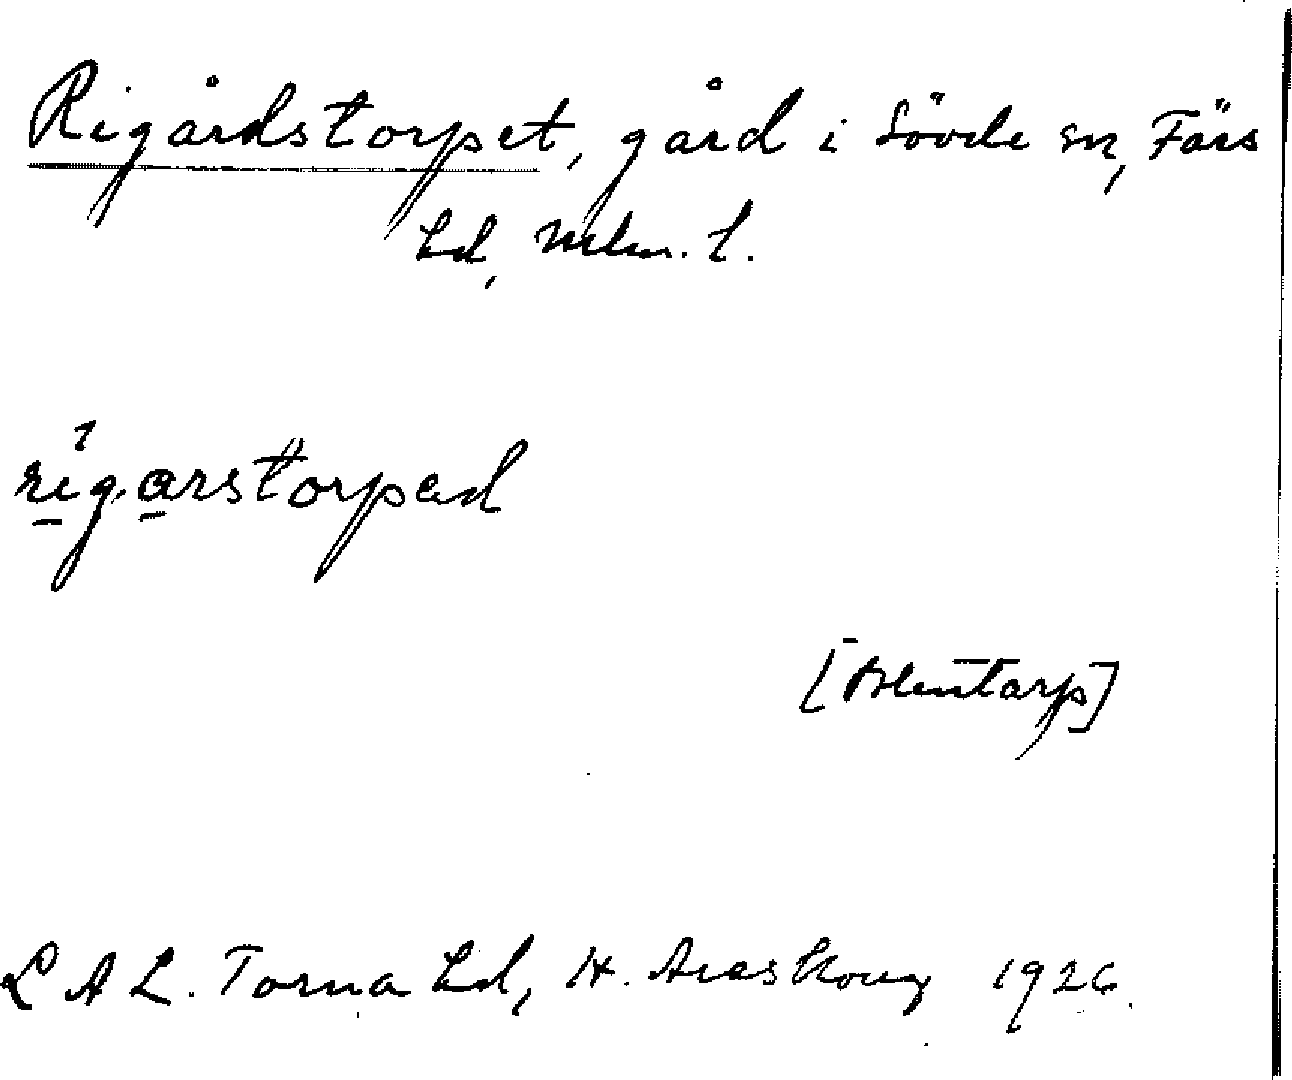 Rigårdstorpet, gård i Sövde sn, Färs
hd, Mlm. l.
rigarstorped
[Blentarp]
L A L. Torna hd, H. Areskoug 1926.